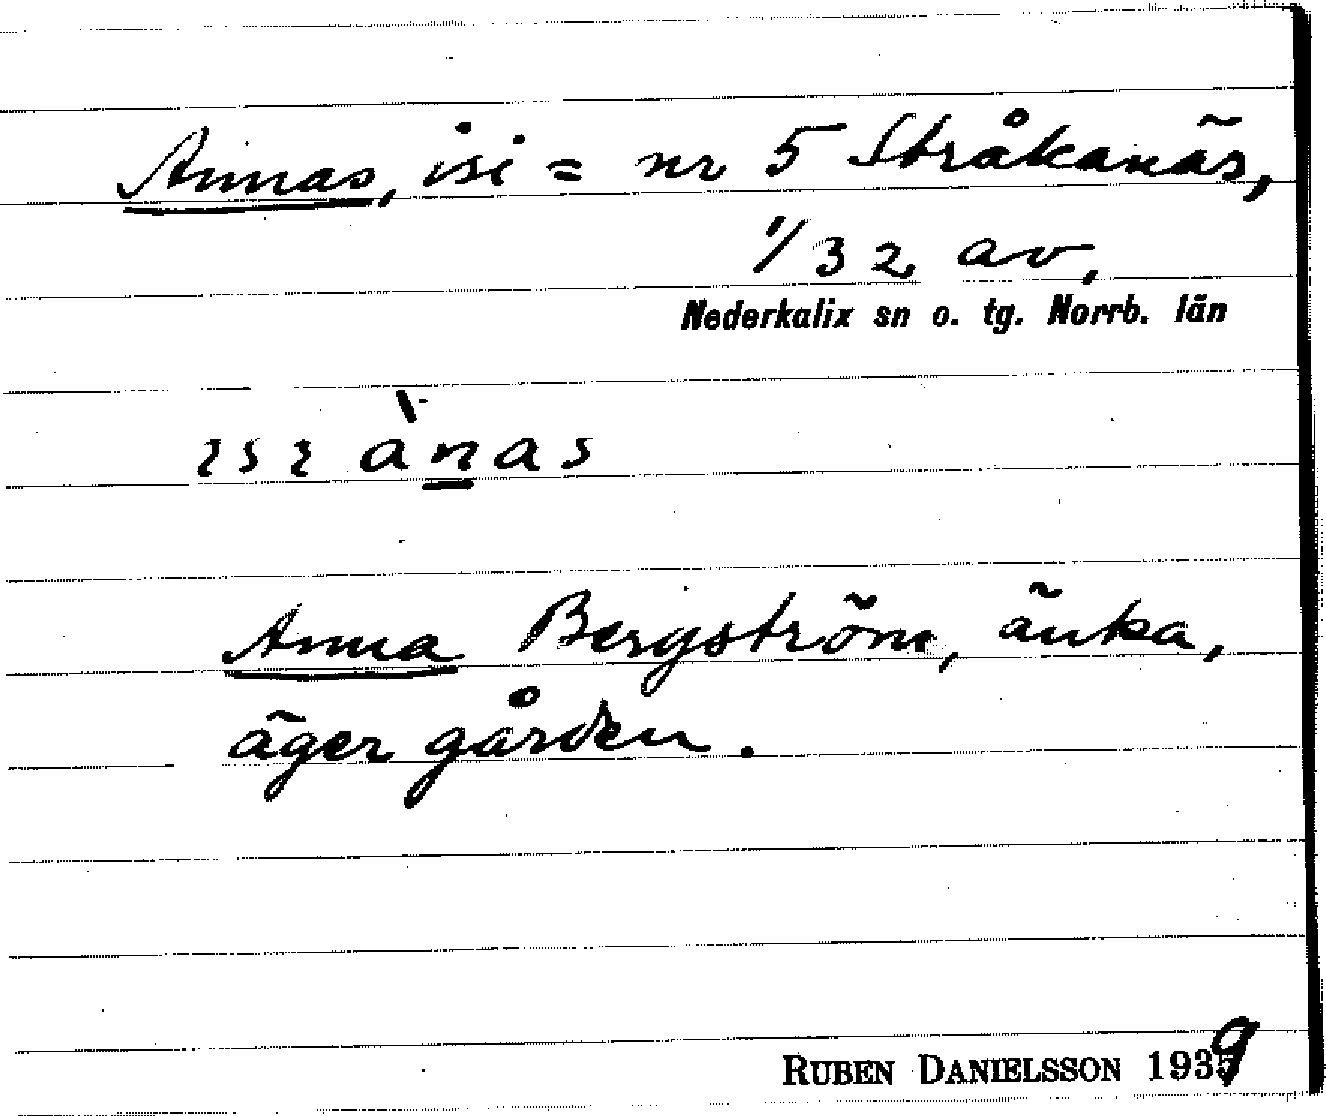 Annas, isi = nr 5 Stråkanäs,
1/32 av,
Nederkalix sn o. tg. Norrb. län
ısı ànas
Anna Bergström, änka,
äger gården.
RUBEN DANIELSSON 1939